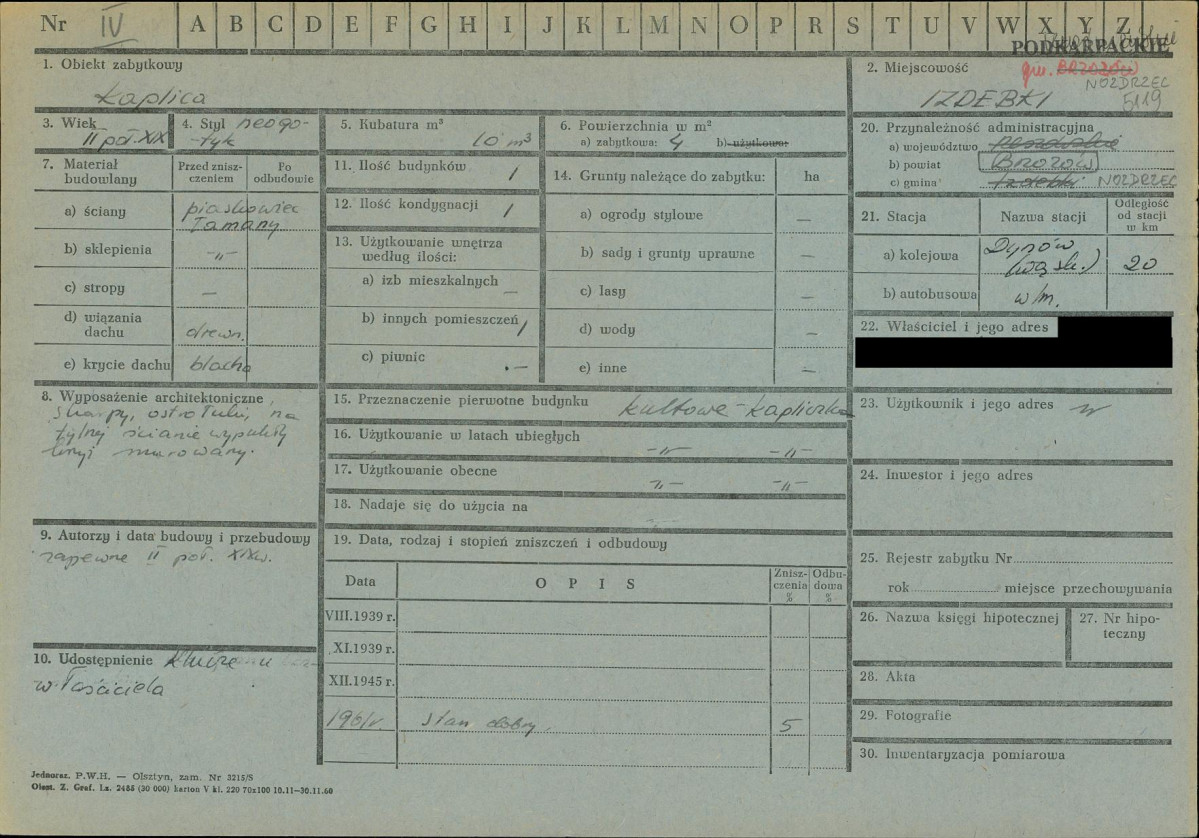 Nr IV A B C D E F G H I J K L M N O P R S T U V W X Y Z
PODKARPACKIE
1. Obiekt zabytkowy
Kaplica
2. Miejscowość
gm. BRZOZÓW
NOZDRZEC
IZDEBKI 5119
3. Wiek
II poł. XIX
4. Styl neogo-
tyk
5. Kubatura m³
10 m³
6. Powierzchnia w m²
a) zabytkowa: 4 b) użytkowa:
7. Materiał budowlany
Przed znisz-
czeniem
Po
odbudowie
a) ściany piaskowiec
łamany
b) sklepienia -„-
c) stropy —
d) wiązania
dachu drewn.
e) krycie dachu blacha
8. Wyposażenie architektoniczne
skarpy, ostrołuki, na
tylnej ścianie wypukły
murowany.
9. Autorzy i data budowy i przebudowy
zapewne II poł. XIXw.
10. Udostępnienie
właściciela
11. Ilość budynków 1
12. Ilość kondygnacji 1
13. Użytkowanie wnętrza
według ilości:
a) izb mieszkalnych —
b) innych pomieszczeń 1
c) piwnic —
14. Grunty należące do zabytku: ha
a) ogrody stylowe —
b) sady i grunty uprawne —
c) lasy —
d) wody —
e) inne —
15. Przeznaczenie pierwotne budynku kultowe - kapliczka
16. Użytkowanie w latach ubiegłych -„- -„-
17. Użytkowanie obecne -„- -„-
18. Nadaje się do użycia na
19. Data, rodzaj i stopień zniszczeń i odbudowy
Data OPIS Znisz-
czenia
% Odbu-
dowa
%
VIII.1939 r.
XI.1939 r.
XII.1945 r.
1961r. stan dobry. 5
20. Przynależność administracyjna
a) województwo Rzeszowskie
b) powiat BRZOZÓW
c) gmina Izdebki NOZDRZEC
21. Stacja Nazwa stacji Odległość
od stacji
w km
a) kolejowa Dynów
(wąsk.) 20
b) autobusowa w/m.
22. Właściciel i jego adres
23. Użytkownik i jego adres
24. Inwestor i jego adres
25. Rejestr zabytku Nr
rok miejsce przechowywania
26. Nazwa księgi hipotecznej
27. Nr hipo-
teczny
28. Akta
29. Fotografie
30. Inwentaryzacja pomiarowa
Jednoraz. P.W.H. — Olsztyn, zam. Nr 3215/S
Olszt. Z. Graf. Lz. 2488 (30 000) karton V kl. 220 70x100 10.11—30.11.60